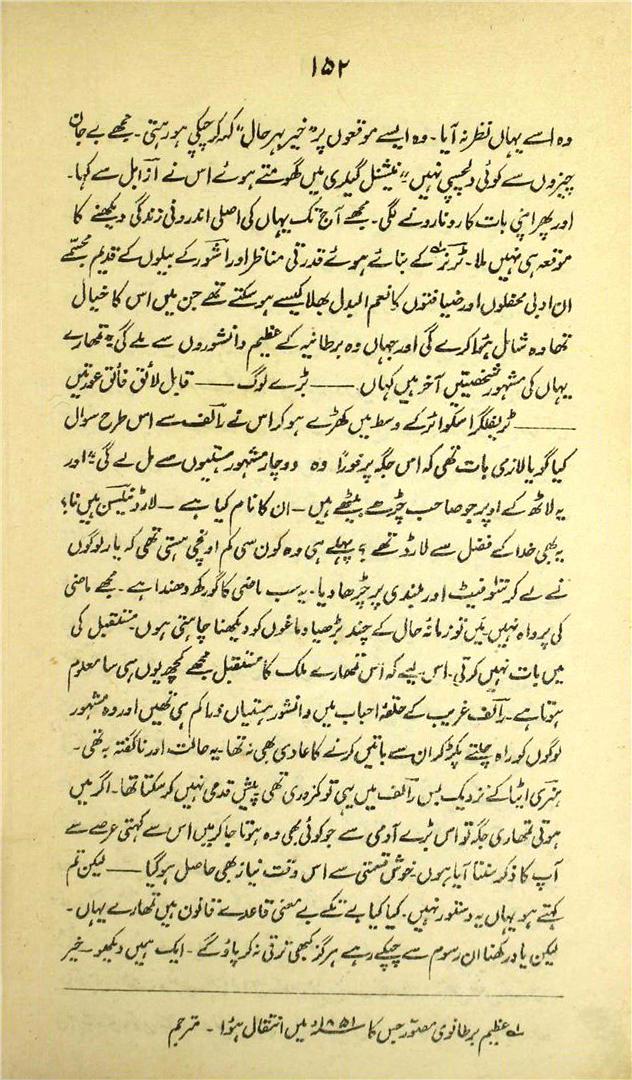 ۱۵۲
وہ اسے یہاں نظر نہ آیا۔ وہ ایسے موقعوں پر "خیر بہر حال" کہہ کر چپکی ہو رہتی۔ مجھے بے جان
چیزوں سے کوئی دلچسپی نہیں" نیشنل گیلری میں گھومتے ہوئے اس نے ازابل سے کہا۔
اور پھر اپنی بات کا رونا رونے لگی۔ مجھے آج تک یہاں کی اصلی اندرونی زندگی دیکھنے کا
موقعہ ہی نہیں ملا۔ ٹرنر لہ کے بنائے ہوئے قدرتی مناظر اور آشور کے بیلوں کے قدیم مجسمّے
ان ادبی محفلوں اور ضیافتوں کا نعم البدل بھلا کیسے ہو سکتے تھے جن میں اس کا خیال
تھا وہ شامل ہوا کرے گی اور جہاں وہ برطانیہ کے عظیم دانشوروں سے ملے گی" تمہارے
یہاں کی مشہور شخصیتیں آخر ہیں کہاں —— بڑے لوگ —— قابل لائق فائق عورتیں
—— ٹریفلگر اسکوائر کے وسط میں کھڑے ہو کر اس نے رالف سے اس طرح سوال
کیا گویا لازمی بات تھی کہ اس جگہ پر فوراً وہ دو چار مشہور ہستیوں سے مل لے گی" اور
یہ لاٹھ کے اوپر جو صاحب چڑھے بیٹھے ہیں – ان کا نام کیا ہے – لارڈ نیلسن ہیں نا؟
یہ بھی خدا کے فضل سے لارڈ تھے؟ پہلے ہی وہ کون سی کم اونچی ہستی تھی کہ یار لوگوں
نے لے کر سَو فیٹ اور بلندی پر چڑھا دیا۔ یہ سب ماضی کا گورکھ دھندا ہے۔ مجھے ماضی
کی پرواہ نہیں۔ میں تو زمانہ حال کے چند بڑھیا دماغوں کو دیکھنا چاہتی ہوں۔ مستقبل کی
میں بات نہیں کرتی۔ اس لیے کہ اس تمہارے ملک کا مستقبل مجھے کچھ یوں ہی سا معلوم
ہوتا ہے۔ رالف غریب کے حلقۂ احباب میں دانشور ہستیاں ذرا کم ہی تھیں اور وہ مشہور
لوگوں کو راہ چلتے پکڑ کر ان سے باتیں کرنے کا عادی بھی نہ تھا۔ یہ حالت اور ناگفتہ بہ تھی۔
ہنری ایٹا کے نزدیک بس رالف میں یہی تو کمزوری تھی پیش قدمی نہیں کر سکتا تھا۔ اگر میں
ہوتی تمہاری جگہ تو اس بڑے آدمی سے جو کوئی بھی وہ ہوتا جا کر میں اس سے کہتی عرصے سے
آپ کا ذکر سنتا آیا ہوں۔ خوش قسمتی سے اس وقت نیاز بھی حاصل ہو گیا —— لیکن تم
کہتے ہو یہاں یہ دستور نہیں۔ کیا کیا بے تکے بے معنی قاعدے قانون ہیں تمہارے یہاں۔
لیکن یاد رکھنا ان رسوم سے چپکے رہے ہرگز کبھی ترقی نہ کر پاؤ گے۔ ایک ہمیں دیکھو – خیر
لہ عظیم برطانوی مصوّر جس کا ۱۸۵۱ء میں انتقال ہوا – مترجم